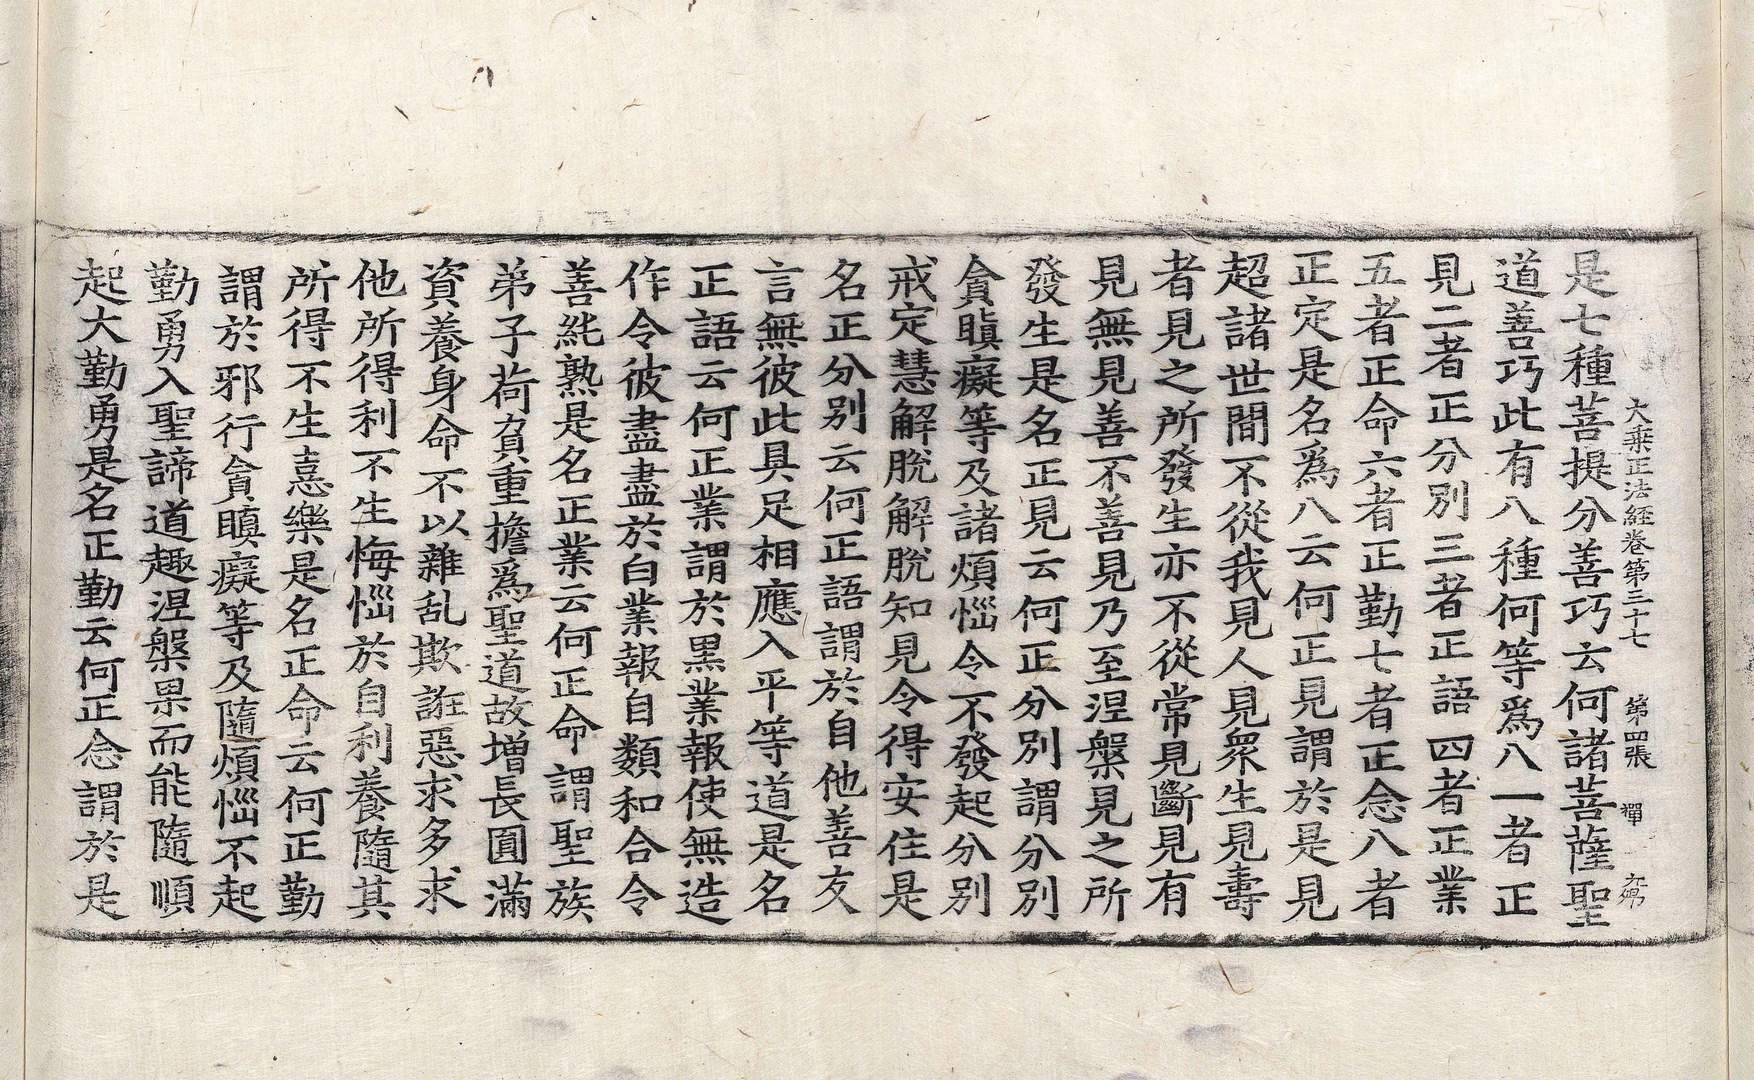 大乘正法經卷第三十七 第四張 禪
是七種菩提分善巧云何諸菩薩聖
道善巧此有八種何等爲八一者正
見二者正分別三者正語四者正業
五者正命六者正勤七者正念八者
正定是名爲八云何正見謂於是見
超諸世間不從我見人見衆生見壽
者見之所發生亦不從常見斷見有
見無見善不善見乃至涅槃見之所
發生是名正見云何正分別謂分別
貪瞋癡等及諸煩惱令不發起分別
戒定慧解脫解脫知見令得安住是
名正分別云何正語謂於自他善友
言無彼此具足相應入平等道是名
正語云何正業謂於黒業報使無造
作令彼盡盡於白業報自類和合令
善純熟是名正業云何正命謂聖族
弟子荷負重擔爲聖道故增長圓滿
資養身命不以雜乱欺誑惡求多求
他所得利不生悔惱於自利養隨其
所得不生憙樂是名正命云何正勤
謂於邪行貪瞋癡等及隨煩惱不起
勤勇入聖諦道趣涅槃果而能隨順
起大勤勇是名正勤云何正念謂於是